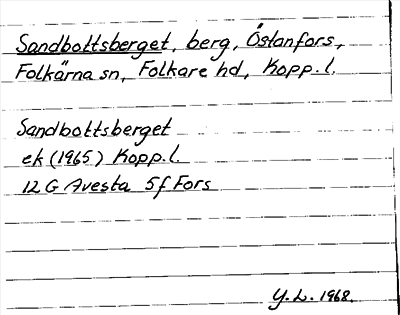 Sandbottsberget, berg, Östanfors,
Folkärna sn, Folkare hd, Kopp. l.
Sandbottsberget
ek (1965) Kopp. l.
12 G Avesta 5f Fors
Y. L. 1968.